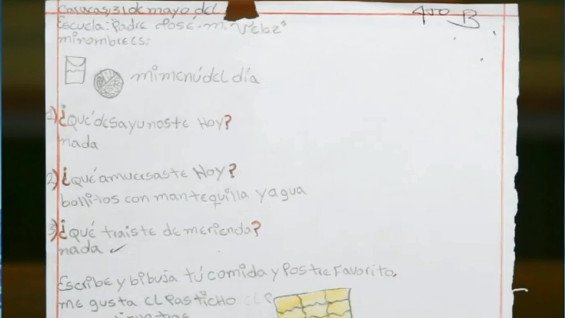 Caracas, 31 de mayo del
4to B
Escuela: Padre José. m. Vélaz
minombrees:
mimenú del día
1) ¿Qué desayunoste Hoy?
nada
2) ¿qué amuersaste Hoy?
bollitos con mantequilla y agua
3) ¿Qué traiste de merienda?
nada
Escribe y bibuja tú comida y Postre Favorito.
me gusta el Pasticho